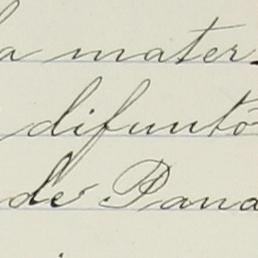 la mater
difunto
de Pana